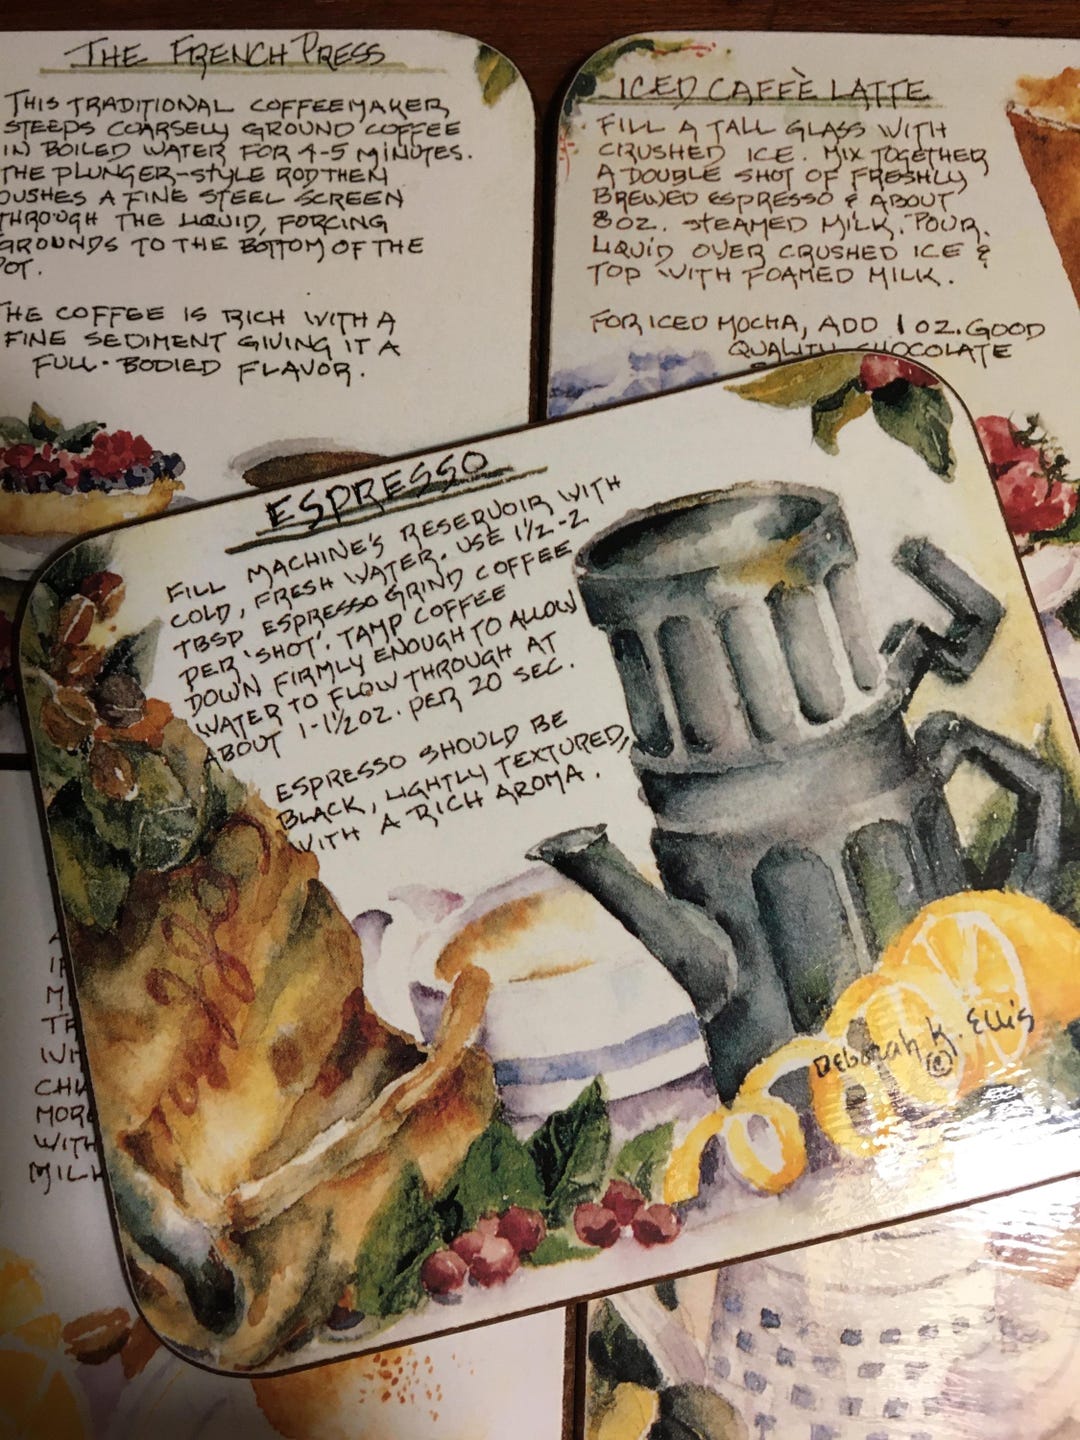 THE FRENCH PRESS
THIS TRADITIONAL COFFEEMAKER
STEEPS COARSELY GROUND COFFEE
IN BOILED WATER FOR 4-5 MINUTES.
THE PLUNGER-STYLE ROD THEN
PUSHES A FINE STEEL SCREEN
THROUGH THE LIQUID, FORCING
GROUNDS TO THE BOTTOM OF THE
POT.
THE COFFEE IS RICH WITH A
FINE SEDIMENT GIVING IT A
FULL-BODIED FLAVOR.
ICED CAFFÈ LATTE
FILL A TALL GLASS WITH
CRUSHED ICE. MIX TOGETHER
A DOUBLE SHOT OF FRESHLY
BREWED ESPRESSO & ABOUT
8 OZ. STEAMED MILK. POUR
LIQUID OVER CRUSHED ICE &
TOP WITH FOAMED MILK.
FOR ICED MOCHA, ADD 1 OZ. GOOD
QUALITY CHOCOLATE
ESPRESSO
FILL MACHINE'S RESERVOIR WITH
COLD, FRESH WATER. USE 1½-2
TBSP ESPRESSO GRIND COFFEE
PER 'SHOT'. TAMP COFFEE
DOWN FIRMLY ENOUGH TO ALLOW
WATER TO FLOW THROUGH AT
ABOUT 1-1½ OZ. PER 20 SEC.
ESPRESSO SHOULD BE
BLACK, LIGHTLY TEXTURED,
WITH A RICH AROMA.
DEBORAH K. ELLIS
©
WITH
MILK